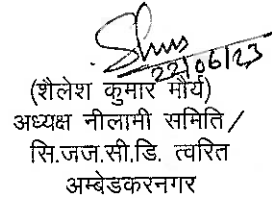 22/06/23
(शैलेश कुमार मौर्य)
अध्यक्ष नीलामी समिति/
सि.जज.सी.डि. त्वरित
अम्बेडकरनगर